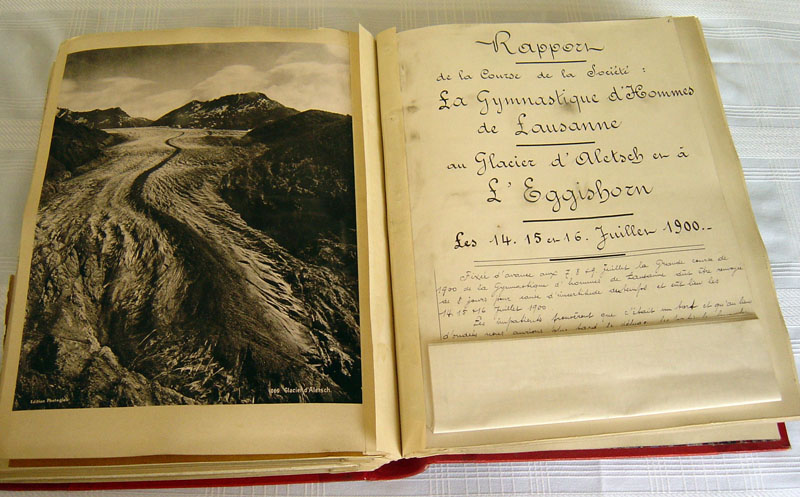 Edition Photoglob
1086 Glacier d'Aletsch.
Rapport
de la Course de la Société :
La Gymnastique d'Hommes
de Lausanne
au Glacier d'Aletsch et à
L'Eggishorn
Les 14. 15 et 16. Juillet 1900.-
Fixée d'avance aux 7, 8 & 9 Juillet la Grande course de
1900 de la Gymnastique d'hommes de Lausanne dût être renvoyée
de 8 jours pour cause d'incertitude du temps et eut lieu les
14. 15 & 16 Juillet 1900
Les impatients trouvèrent que c'était un tard et qu'au lieu
nous aurions plus tard